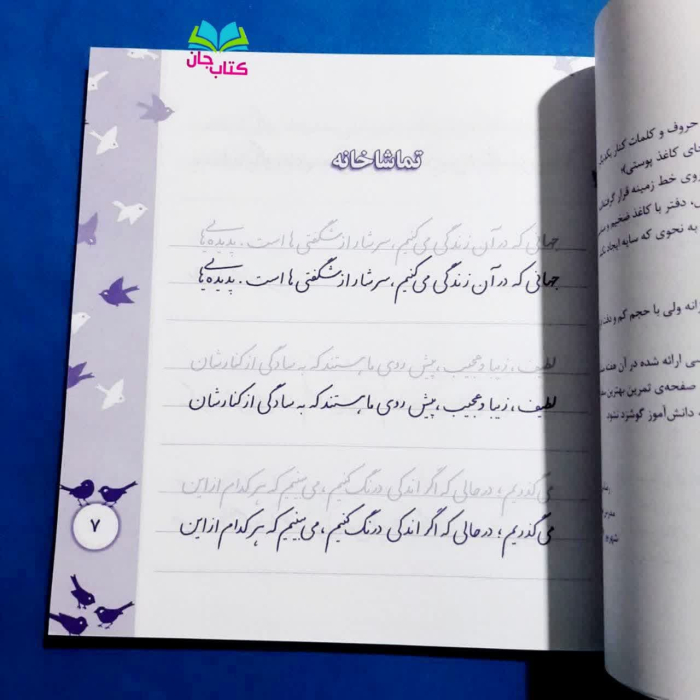 کتاب جان
تماشاخانه
جهانی که در آن زندگی می‌کنیم، سرشار از شگفتی‌ها است. پدیده‌هایی
جهانی که در آن زندگی می‌کنیم، سرشار از شگفتی‌ها است. پدیده‌هایی
لطیف، زیبا و عجیب، پیش روی ما هستند که به سادگی از کنارشان
لطیف، زیبا و عجیب، پیش روی ما هستند که به سادگی از کنارشان
می‌گذریم؛ در حالی که اگر اندکی درنگ کنیم، می‌بینیم که هر کدام از این
می‌گذریم؛ در حالی که اگر اندکی درنگ کنیم، می‌بینیم که هر کدام از این
۷
حروف و کلمات کنار یکدیگر
جای کاغذ پوستی)،
روی خط زمینه قرار گرفتن
دفتر با کاغذ ضخیم و
به نحوی که سایه ایجاد
ولی با حجم کم و دقت
ارائه شده در آن هفته
صفحه‌ی تمرین بهترین
دانش‌آموز گوشزد شود